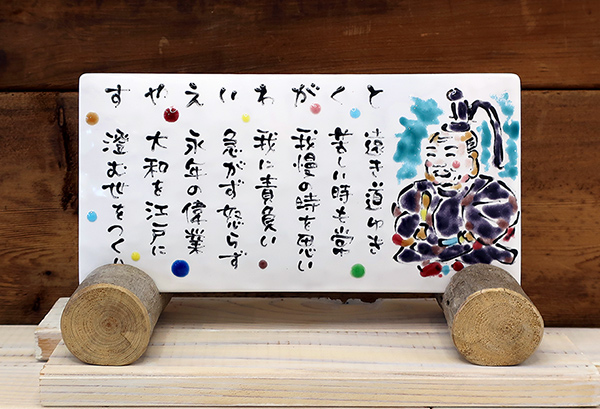 と 遠き道ゆき
く 苦しい時も常
が 我慢の時を思い
わ 我に責負い
い 急がず怒らず
え 永年の偉業
や 大和を江戸に
す 澄む世をつくり